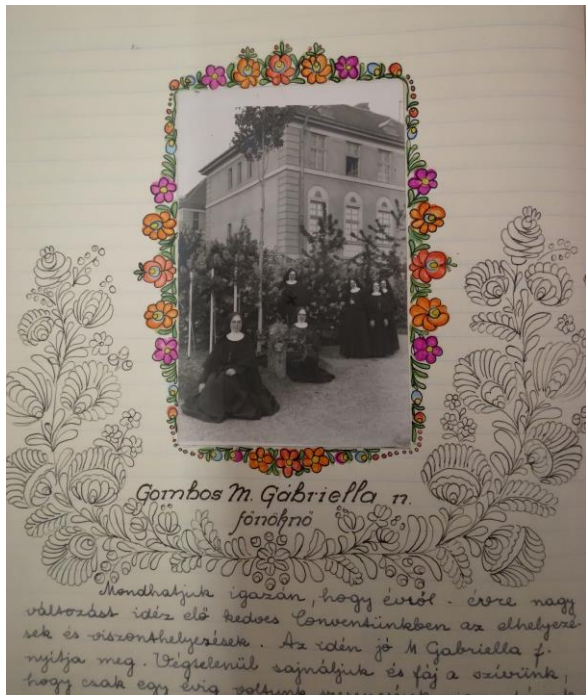 Gombos M. Gabriella n.
főnöknő
Mondhatjuk igazán, hogy évről - évre nagy
változást idéz elő kedves Conventünkben az elhelyezé
sek és viszonthelyezések. Az idén jó M Gabriella f.
nyitja meg. Végtelenül sajnáljuk és fáj a szívünk,
hogy csak egy évig voltunk